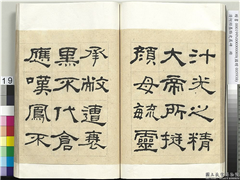 汁光之精
大帝所挺
顏母毓靈
承敝遭衰
黑不代倉
應嘆鳳不
19